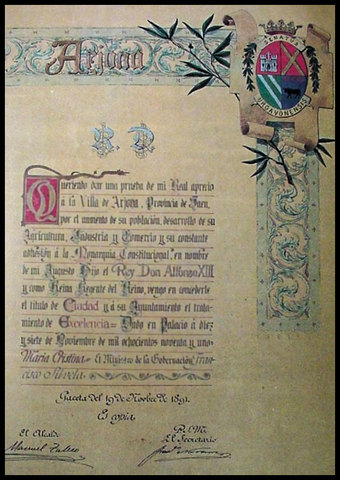 Arjona
R. D.
Queriendo dar una prueba de mi Real aprecio
á la Villa de Arjona, Provincia de Jaen,
por el aumento de su población, desarrollo de su
Agricultura, Industria y Comercio y su constante
adhesión á la Monarquia Constitucional, en nombre
de mi Augusto Hijo el Rey Don Alfonso XIII
y como Reina Regente del Reino, vengo en concederle
el título de Ciudad y á su Ayuntamiento el trata-
miento de Excelencia = Dado en Palacio á diez
y siete de Noviembre de mil ochocientos noventa y uno=
María Cristina = El Ministro de la Gobernación, Fran-
cisco Silvela
Gaceta del 19 de Novbre. de 1891.
Es copia
El Alcalde
P. A. M.
El Secretario
Manuel